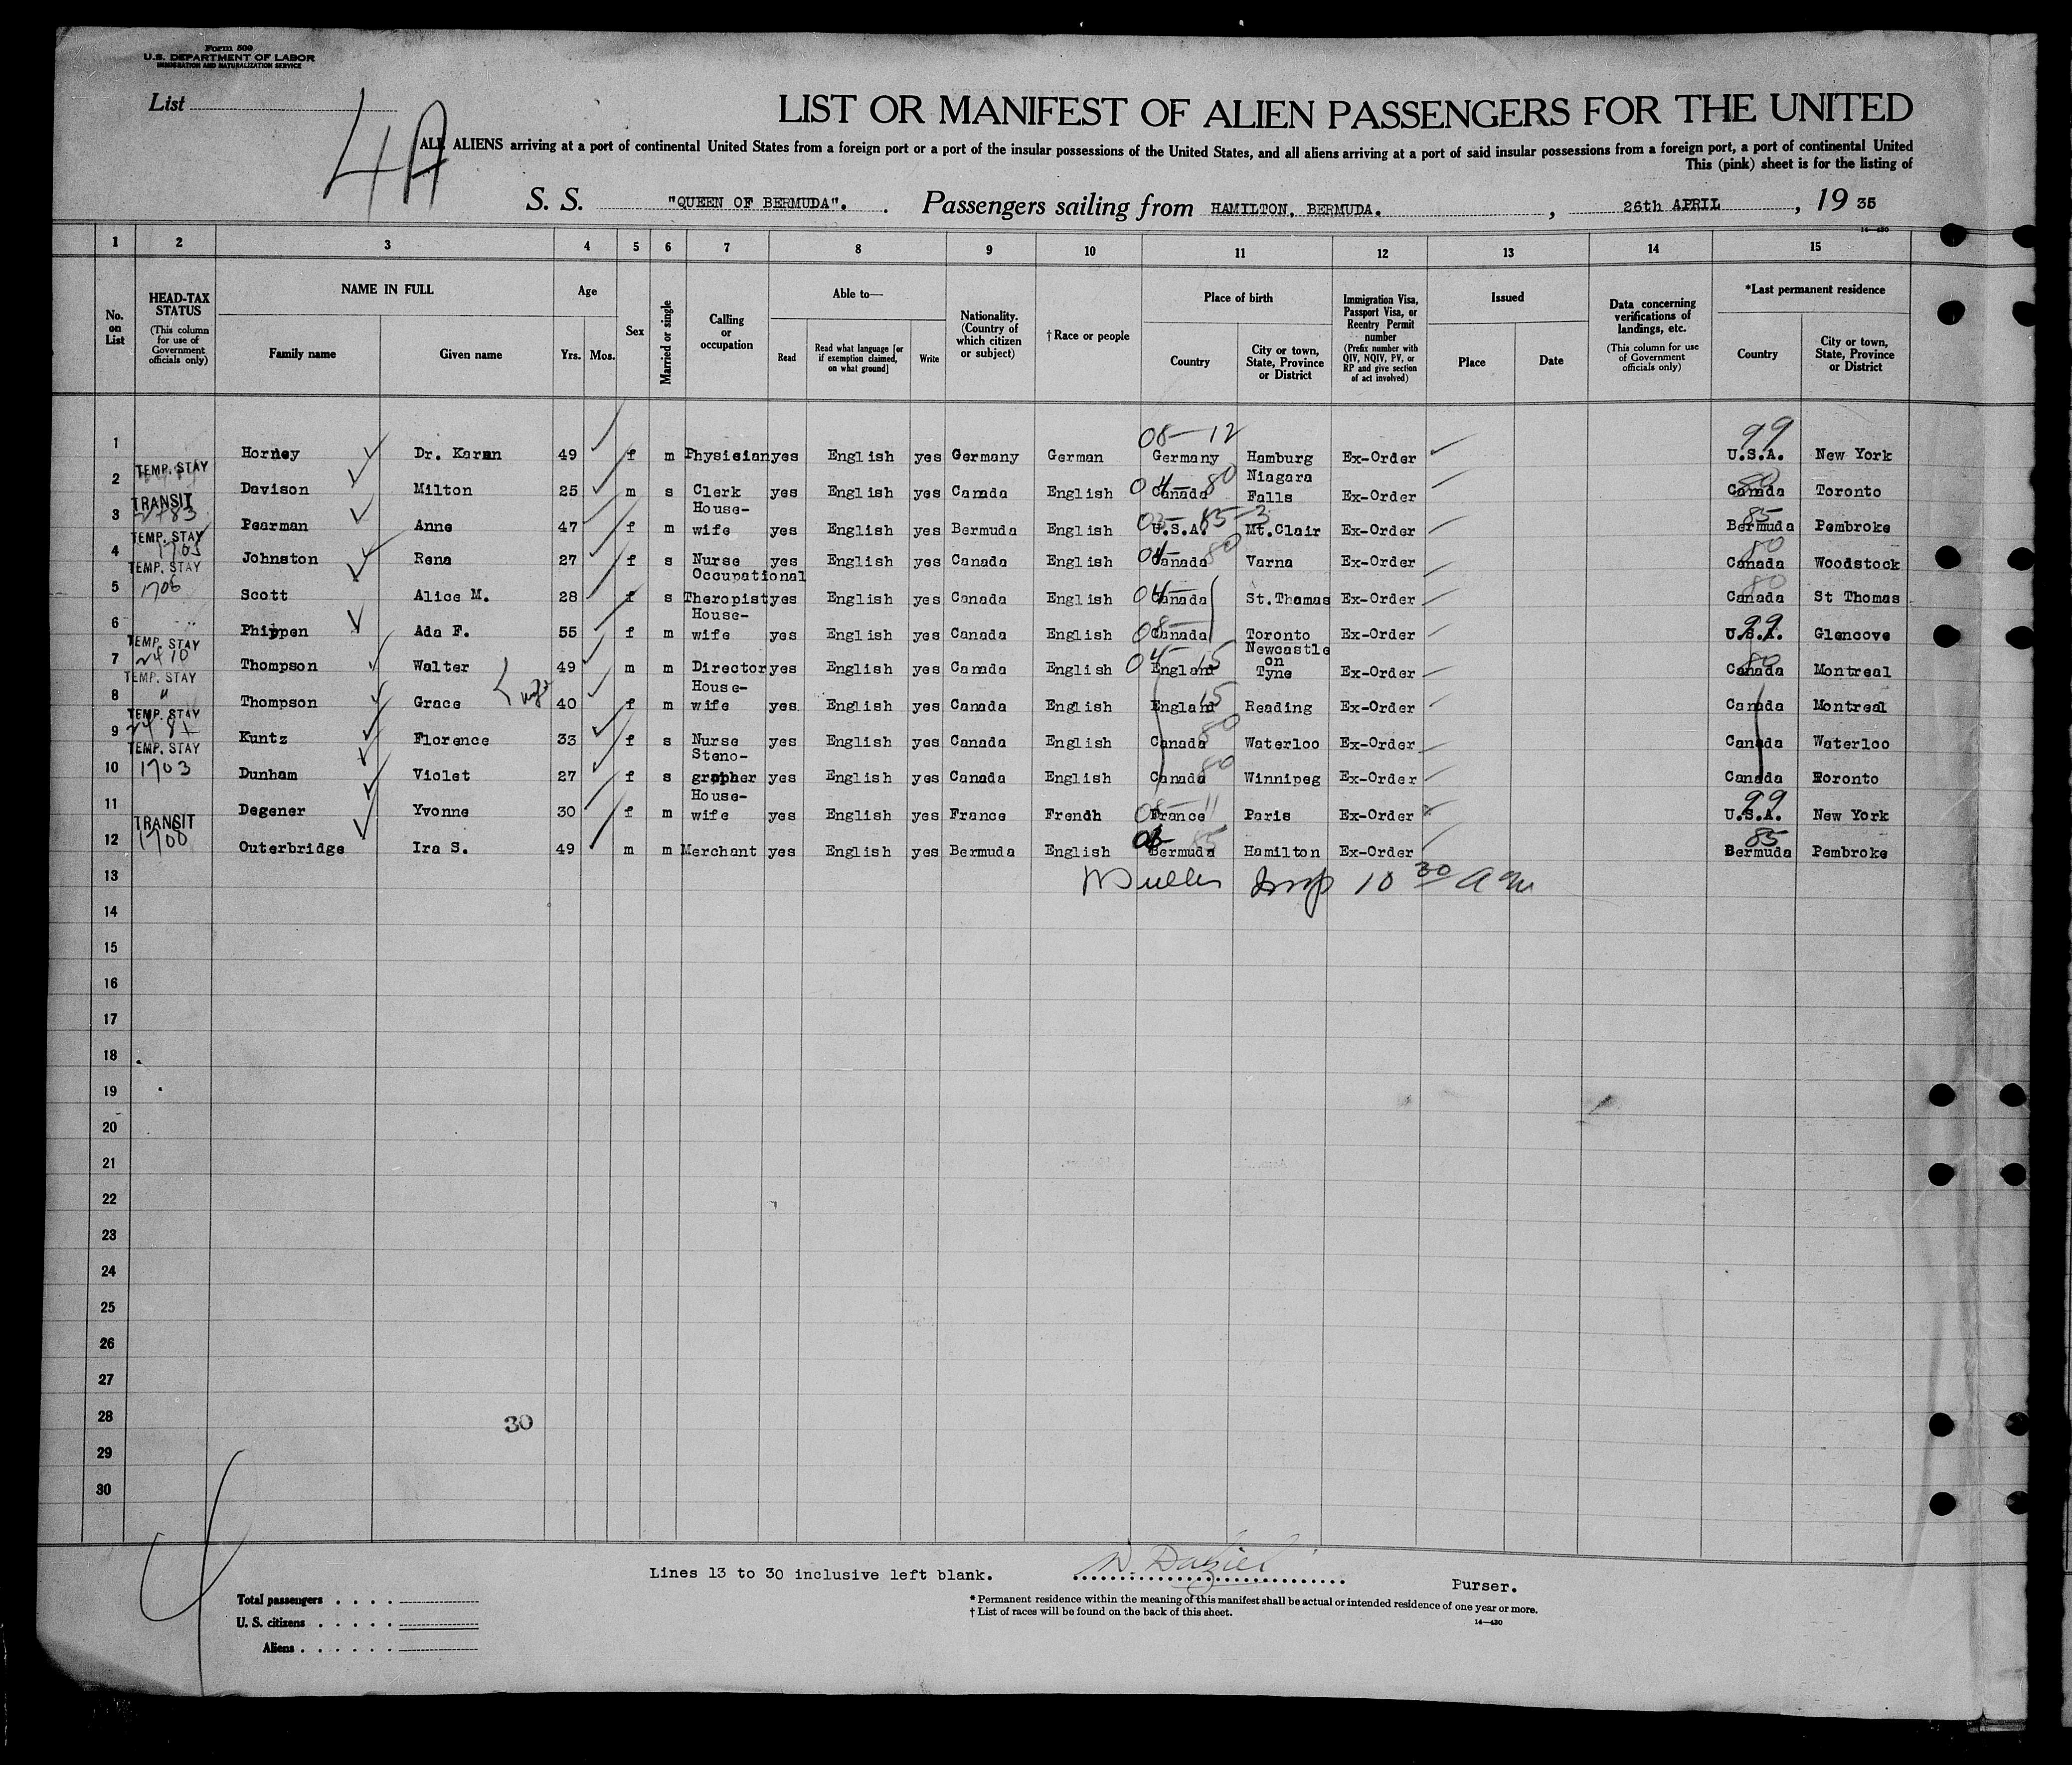 Form 500
U.S. DEPARTMENT OF LABOR
IMMIGRATION AND NATURALIZATION SERVICE
List
4A
LIST OR MANIFEST OF ALIEN PASSENGERS FOR THE UNITED
ALL ALIENS arriving at a port of continental United States from a foreign port or a port of the insular possessions of the United States, and all aliens arriving at a port of said insular possessions from a foreign port, a port of continental United
This (pink) sheet is for the listing of
S. S. "QUEEN OF BERMUDA". Passengers sailing from HAMILTON, BERMUDA. , 26th APRIL , 19 35
14—430
1 2 3 4 5 6 7 8 9 10 11 12 13 14 15
No. on List
HEAD-TAX STATUS (This column for use of Government officials only)
NAME IN FULL
Family name Given name
Age
Yrs. Mos.
Sex
Married or single
Calling or occupation
Able to—
Read Read what language [or if exemption claimed, on what ground] Write
Nationality. (Country of which citizen or subject)
† Race or people
Place of birth
Country City or town, State, Province or District
Immigration Visa, Passport Visa, or Reentry Permit number (Prefix number with QIV, NQIV, PV, or RP and give section of act involved)
Issued
Place Date
Data concerning verifications of landings, etc. (This column for use of Government officials only)
*Last permanent residence
Country City or town, State, Province or District
08—12 99
1 Horney Dr. Karen 49 f m Physician yes English yes Germany German Germany Hamburg Ex-Order U.S.A. New York
2 TEMP. STAY Davison Milton 25 m s Clerk yes English yes Canada English 04 Canada 80 Niagara Falls Ex-Order 80 Canada Toronto
3 TRANSIT 2483 Pearman Anne 47 f m House-wife yes English yes Bermuda English 03—85—3 U.S.A. Mt.Clair Ex-Order 85 Bermuda Pembroke
4 TEMP. STAY 1705 Johnston Rena 27 f s Nurse yes English yes Canada English 04 Canada 80 Varna Ex-Order 80 Canada Woodstock
5 TEMP. STAY 1706 Scott Alice M. 28 f s Occupational Theropist yes English yes Canada English 04 Canada St.Thomas Ex-Order 80 Canada St Thomas
6 Phippen Ada F. 55 f m House-wife yes English yes Canada English 08 Canada Toronto Ex-Order 99 U.S.A. Glencove
7 TEMP. STAY 2410 Thompson Walter 49 m m Director yes English yes Canada English 04 England 15 Newcastle on Tyne Ex-Order 80 Canada Montreal
8 TEMP. STAY " Thompson Grace wife 40 f m House-wife yes English yes Canada English England 15 Reading Ex-Order Canada Montreal
9 TEMP. STAY Kuntz Florence 33 f s Nurse yes English yes Canada English Canada 80 Waterloo Ex-Order Canada Waterloo
10 TEMP. STAY 1703 Dunham Violet 27 f s Steno-grapher yes English yes Canada English Canada 80 Winnipeg Ex-Order Canada Toronto
11 Degener Yvonne 30 f m House-wife yes English yes France Frendh 08—11 France Paris Ex-Order 99 U.S.A. New York
12 TRANSIT 1700 Outerbridge Ira S. 49 m m Merchant yes English yes Bermuda English Bermuda 85 Hamilton Ex-Order 85 Bermuda Pembroke
13 Insp 10 30 am
14
15
16
17
18
19
20
21
22
23
24
25
26
27
28 30
29
30
Lines 13 to 30 inclusive left blank. Purser.
Total passengers
U. S. citizens
Aliens
* Permanent residence within the meaning of this manifest shall be actual or intended residence of one year or more.
† List of races will be found on the back of this sheet.
14—430